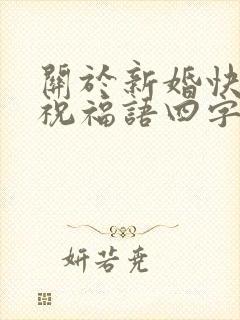 關於新婚快
祝福語四字
妍若堯